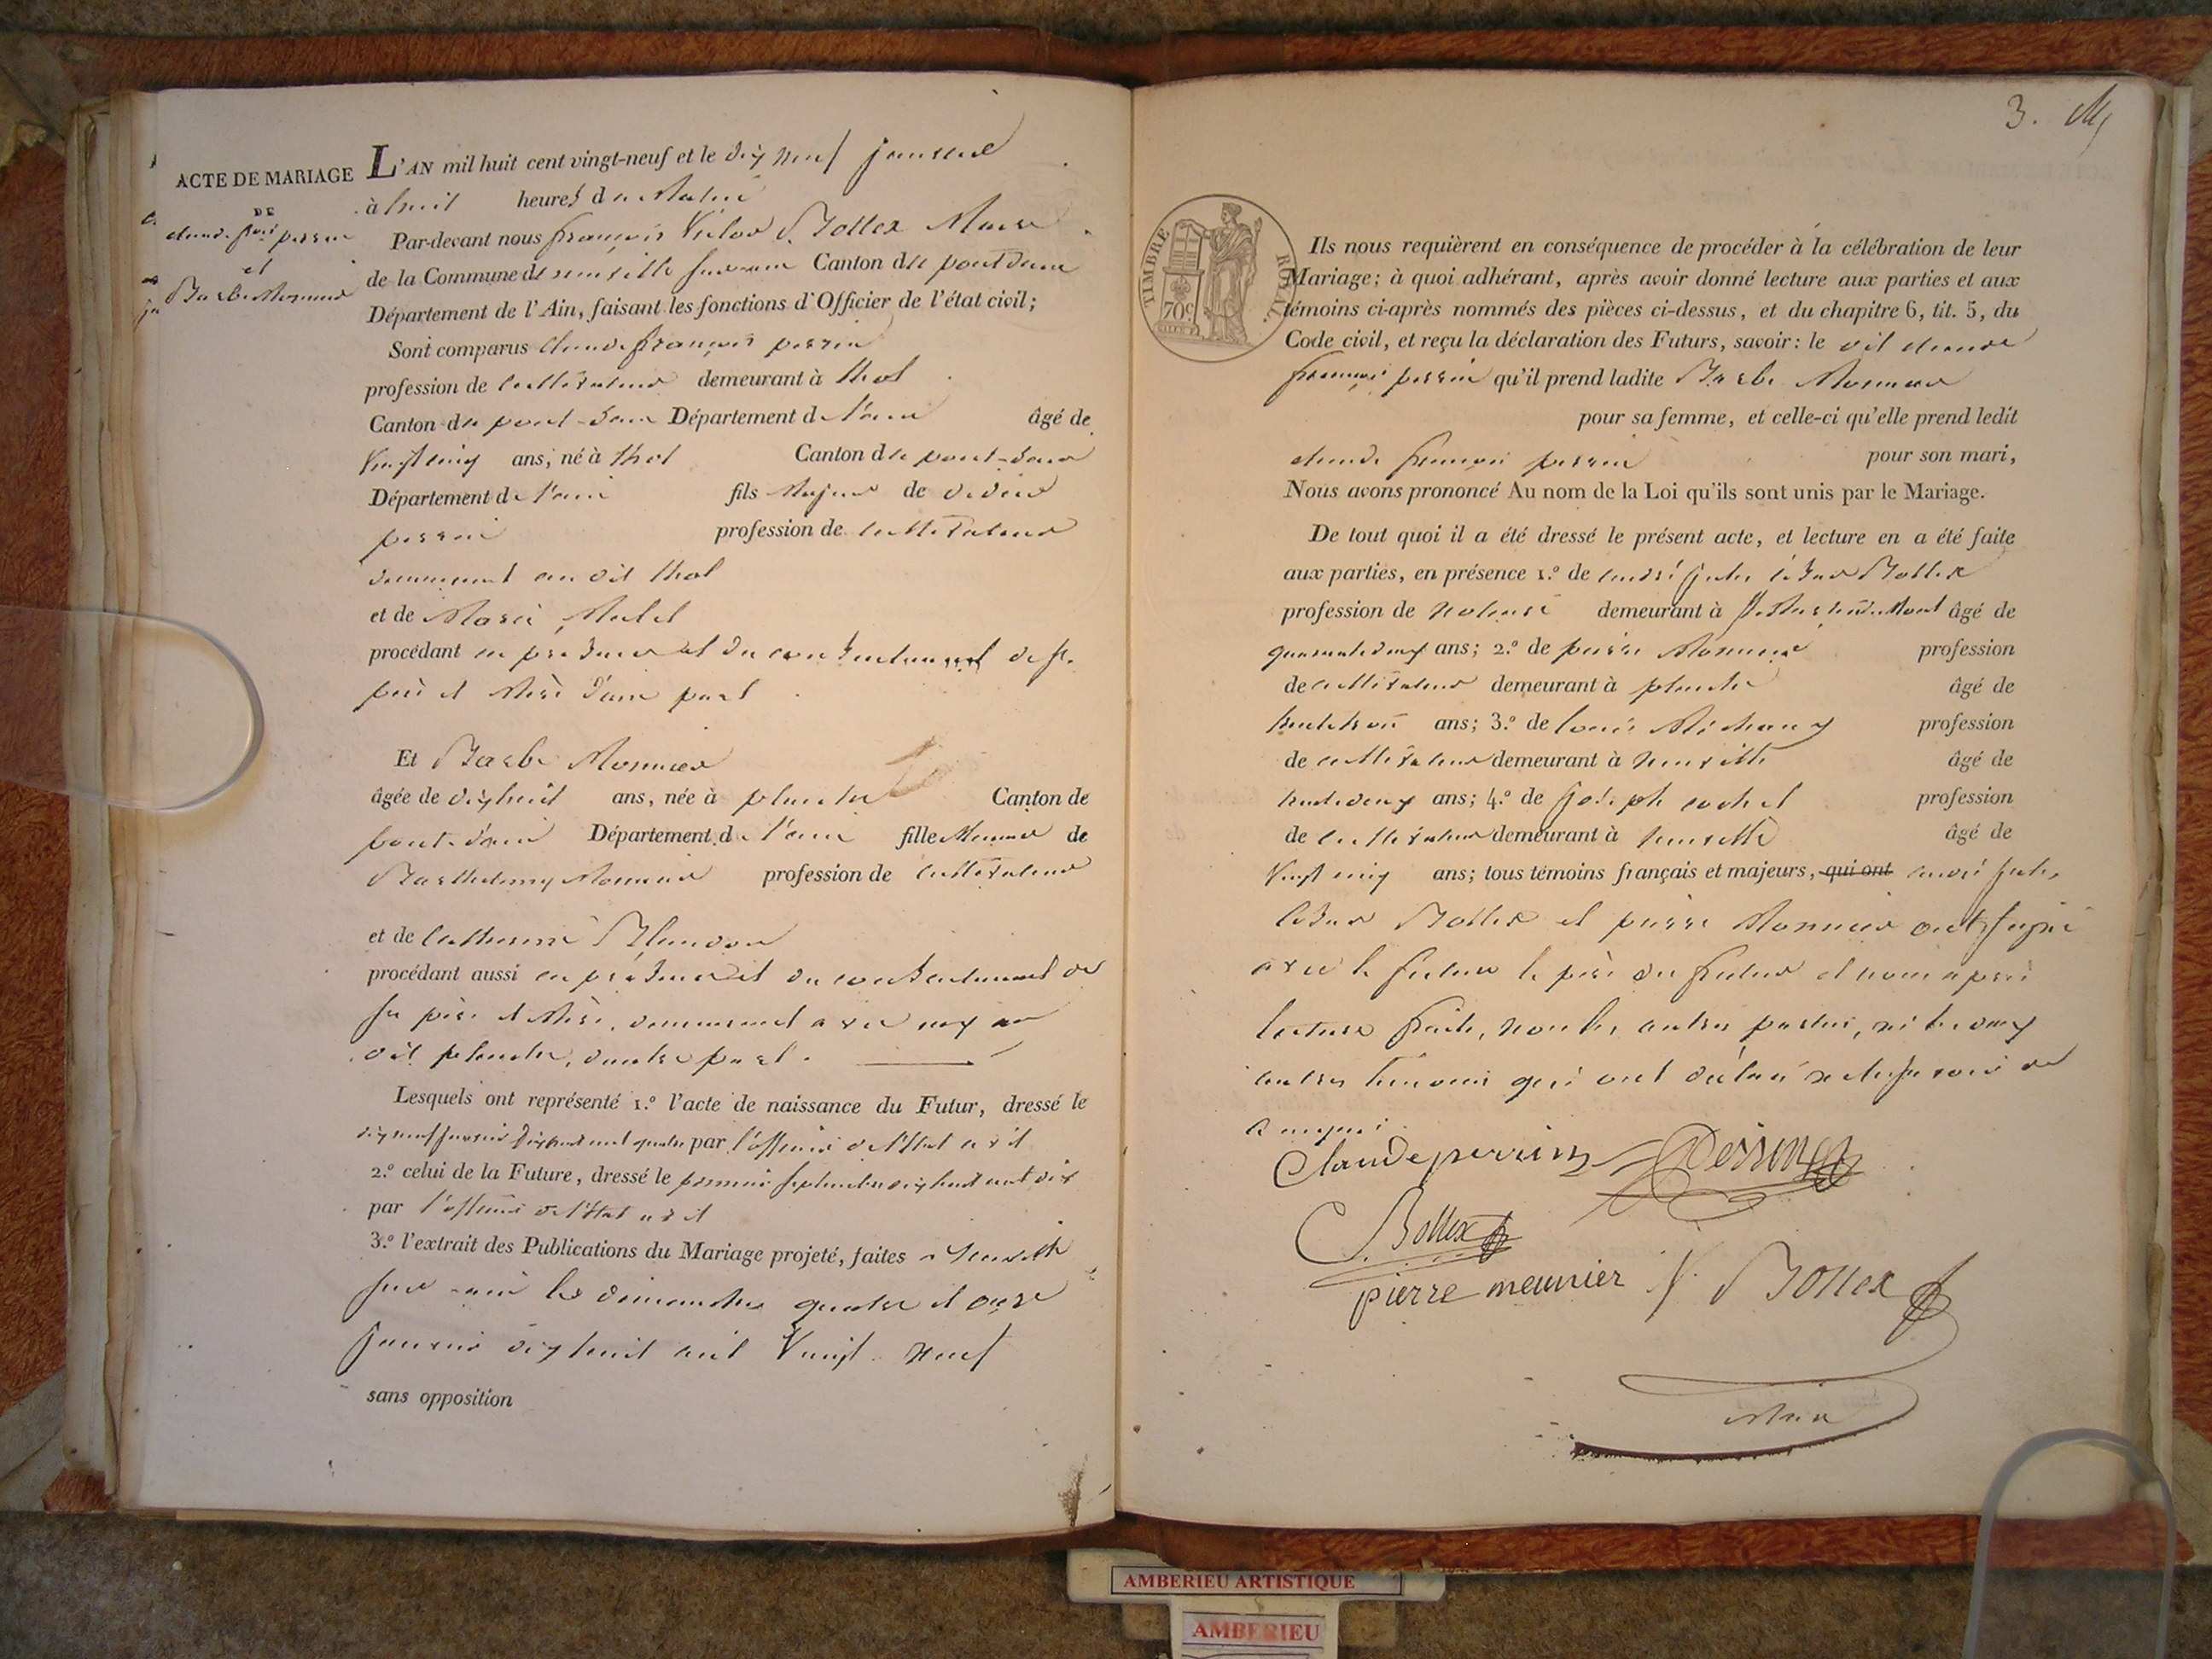 ACTE DE MARIAGE
DE
claude fois perrin
et
Barbe Monnier
L'AN mil huit cent vingt-neuf et le dix neuf janvier
à huit heures du Matin
Par-devant nous françois Victor Bottex Maire
de la Commune de neuville sur ain Canton de pont dain
Département de l'Ain, faisant les fonctions d'Officier de l'état civil;
Sont comparus claude françois perrin
profession de cultivateur demeurant à thol
Canton de pont-dain Département de l'ain âgé de
Vingt cinq ans, né à thol Canton de pont-dain
Département de l'ain fils Majeur de
perrin profession de cultivateur
demeurant au dit thol
et de Marie
procédant en présence et du consentement de ses
père et Mère d'une part
Et Barbe Monnier
âgée de dixhuit ans, née à planche Canton de
pont-d'ain Département de l'ain fille Mineure de
Barthelemy Monnier profession de cultivateur
et de Catherine Blandon
procédant aussi en présence et du consentement de
ses père et Mère, demeurant avec eux au
dit planche, dautre part.
Lesquels ont représenté 1.º l'acte de naissance du Futur, dressé le
par l'officier de l'état civil
2.º celui de la Future, dressé le premier septembre dixhuit cent dix
par l'officier de l'état civil
3.º l'extrait des Publications du Mariage projeté, faites a Neuville
sur ain les dimanches quatre et onze
janvier dixhuit cent Vingt neuf
sans opposition
3.
TIMBRE ROYAL
70c
Ils nous requièrent en conséquence de procéder à la célébration de leur
Mariage; à quoi adhérant, après avoir donné lecture aux parties et aux
témoins ci-après nommés des pièces ci-dessus, et du chapitre 6, tit. 5, du
Code civil, et reçu la déclaration des Futurs, savoir: le dit claude
françois perrin qu'il prend ladite Barbe Monnier
pour sa femme, et celle-ci qu'elle prend ledit
claude françois perrin pour son mari,
Nous avons prononcé Au nom de la Loi qu'ils sont unis par le Mariage.
De tout quoi il a été dressé le présent acte, et lecture en a été faite
aux parties, en présence 1.º de andré jules césar Bottex
profession de notaire demeurant à St Martin du Mont âgé de
quarante deux ans; 2.º de pierre Monnier profession
de cultivateur demeurant à planche âgé de
trente trois ans; 3.º de louis Michaux profession
de cultivateur demeurant à neuville âgé de
trente deux ans; 4.º de joseph cochet profession
de cultivateur demeurant à neuville âgé de
Vingt cinq ans; tous témoins français et majeurs, qui ont andré jules
césar Bottex et pierre Monnier ont signé
avec le futur le père du futur et nous après
lecture faite, non les autres parties, ni les deux
autres témoins qui ont déclaré ne le savoir de
ce requis.
Claude perrin Perrin
C. Bottex
pierre meunier V. Bottex
Maire
AMBERIEU ARTISTIQUE
AMBERIEU